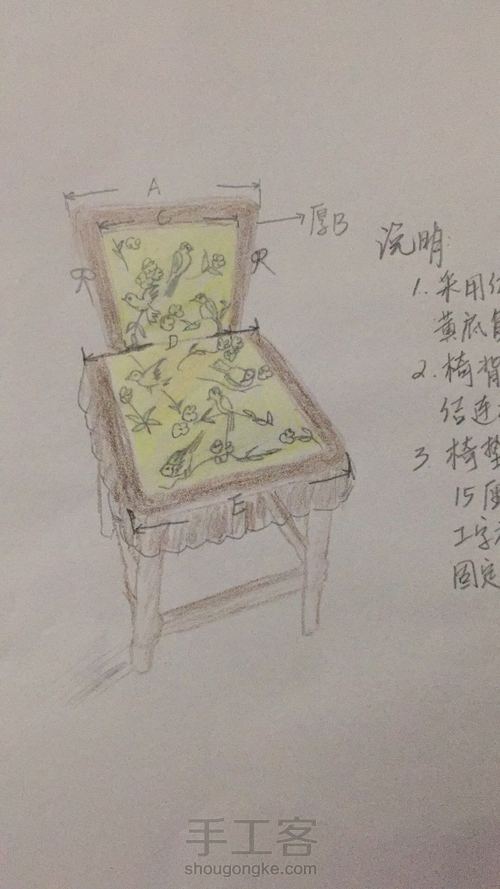 A
C
厚B
D
E
说明:
1. 采用
黄底
2. 椅背
结连
3 椅垫
15厘
工字
固定
手工客
shougongke.com